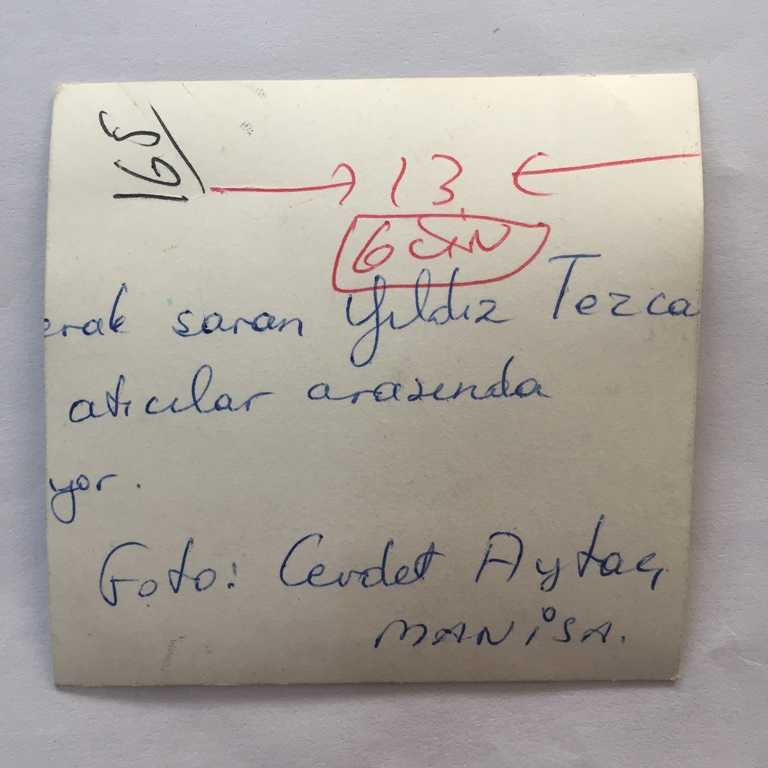 165
13
erak saran Yıldız Tezca
atıcılar arasında
yor.
Foto: Cevdet Aytaç
MANİSA.